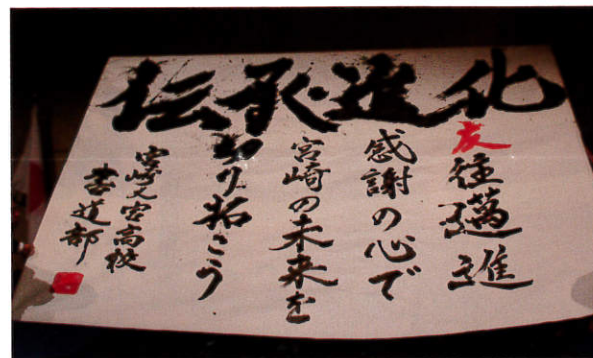 伝承進化
友往邁進
感謝の心で
宮崎の未来を
切り拓こう
宮崎大宮高校
書道部